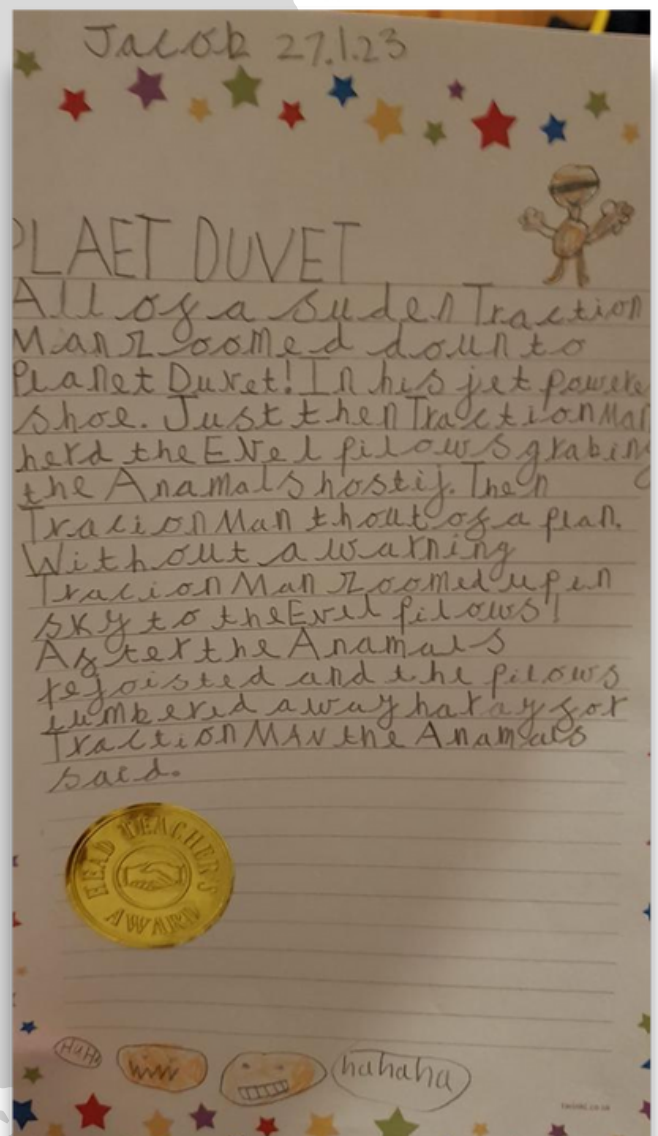 Jacob 27.1.23
PLAET DUVET
All of a suden Traction
Man zoomed doun to
Planet Duvet! In his jet powere
shoe. Just then Traction Man
herd the Evel pilows grabing
the Anamals hostij. Then
Tracion Man thout of a plan.
Without a warning
Tracion Man zoomed up in
sky to the Evel pilows!
After the Anamals
rejoisted and the pilows
lumbered away haray for
Traction MAN the Anamals
said.
HEAD TEACHER'S
AWARD
HuHu
hahaha